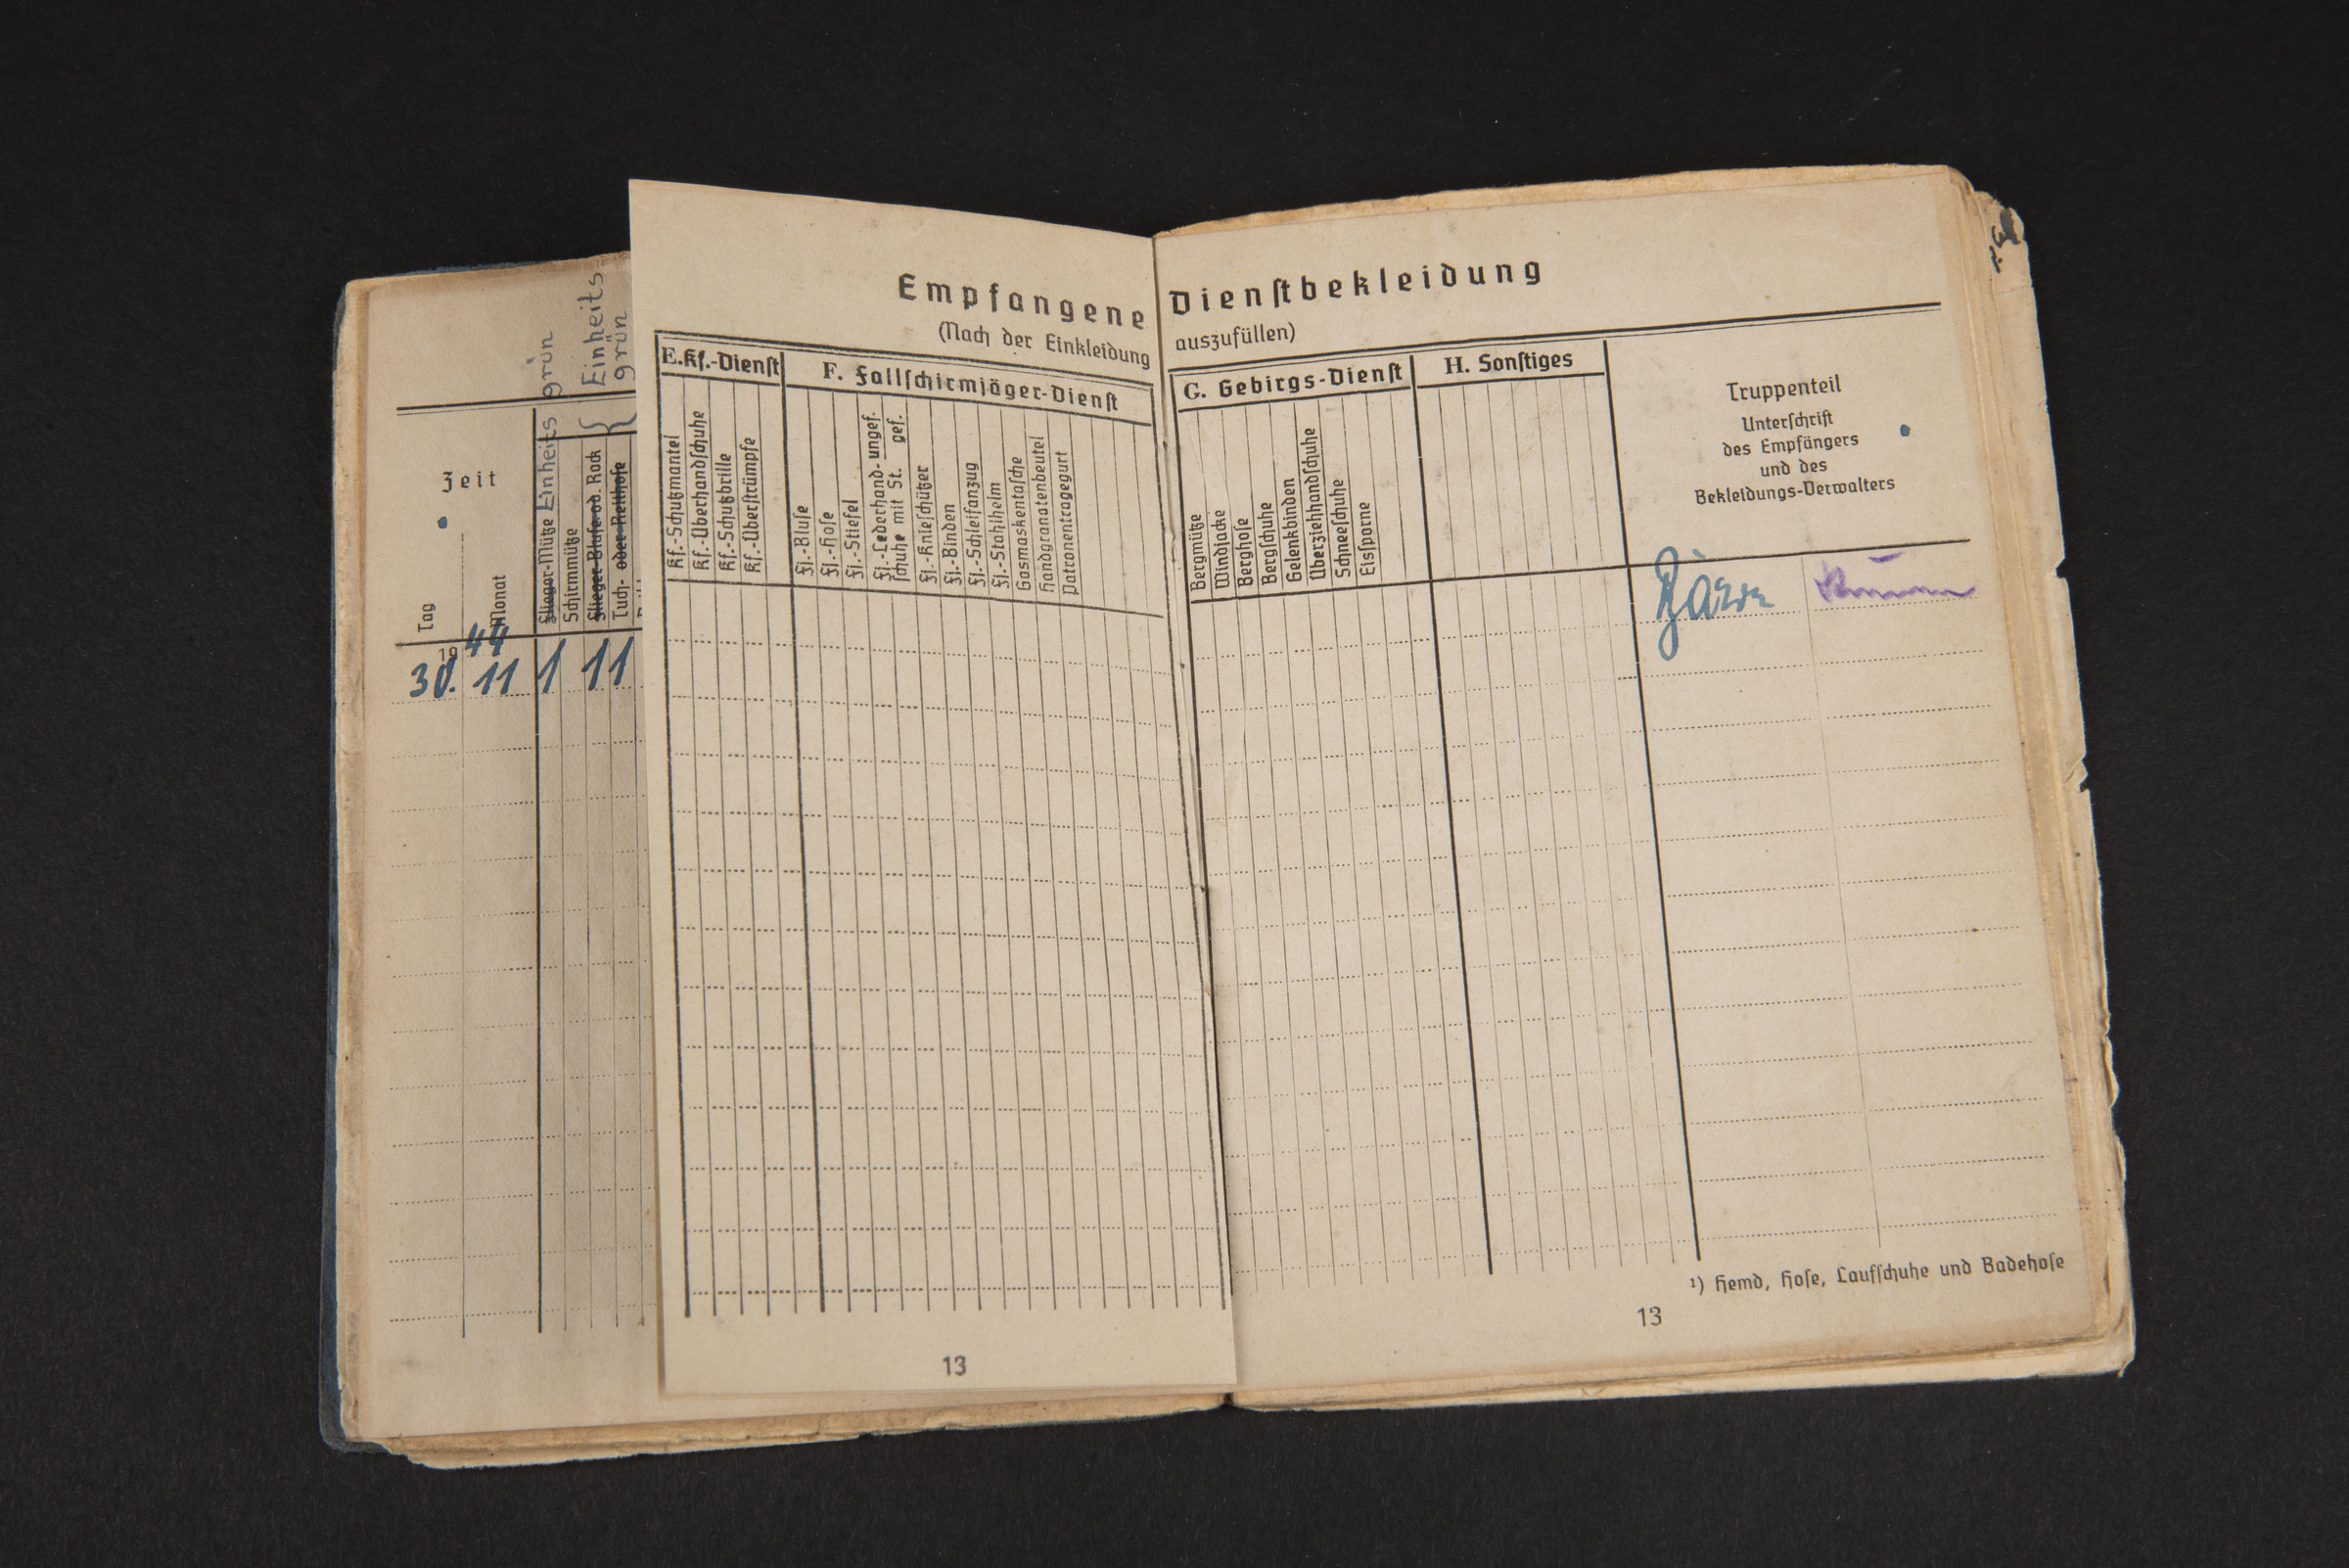 Einheits grün
Einheits-
grün
Zeit
Tag
Monat
Flieger-Mütze
Schirmmütze
Flieger-Bluse od. Rock
Tuch- oder Reithose
1944
30. 11 1 1 1
Empfangene Dienstbekleidung
(Nach der Einkleidung auszufüllen)
E. Kf.-Dienst
Kf.-Schutzmantel
Kf.-Überhandschuhe
Kf.-Schutzbrille
Kf.-Überstrümpfe
F. Fallschirmjäger-Dienst
Fj.-Bluse
Fj.-Hose
Fj.-Stiefel
Fj.-Lederhand- ungef.
schuhe mit St. gef.
Fj.-Knieschützer
Fj.-Binden
Fj.-Schleifanzug
Fj.-Stahlhelm
Gasmaskentasche
Handgranatenbeutel
Patronentragegurt
13
G. Gebirgs-Dienst
Bergmütze
Windjacke
Berghose
Bergschuhe
Gelenkbinden
Überziehhandschuhe
Schneeschuhe
Eissporne
H. Sonstiges
Truppenteil
Unterschrift
des Empfängers
und des
Bekleidungs-Verwalters
¹) Hemd, Hose, Laufschuhe und Badehose
13